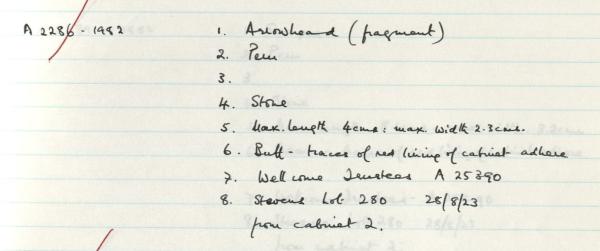 A 2286-1982 1. Arrowhead (fragment)
2. Peru
3.
4. Stone
5. Max. length 4cms: max. width 2.3cms.
6. Buff - traces of red lining of cabinet adhere
7. Wellcome Trustees A 25390
8. Stevens Lot 280 28/8/23
from cabinet 2.